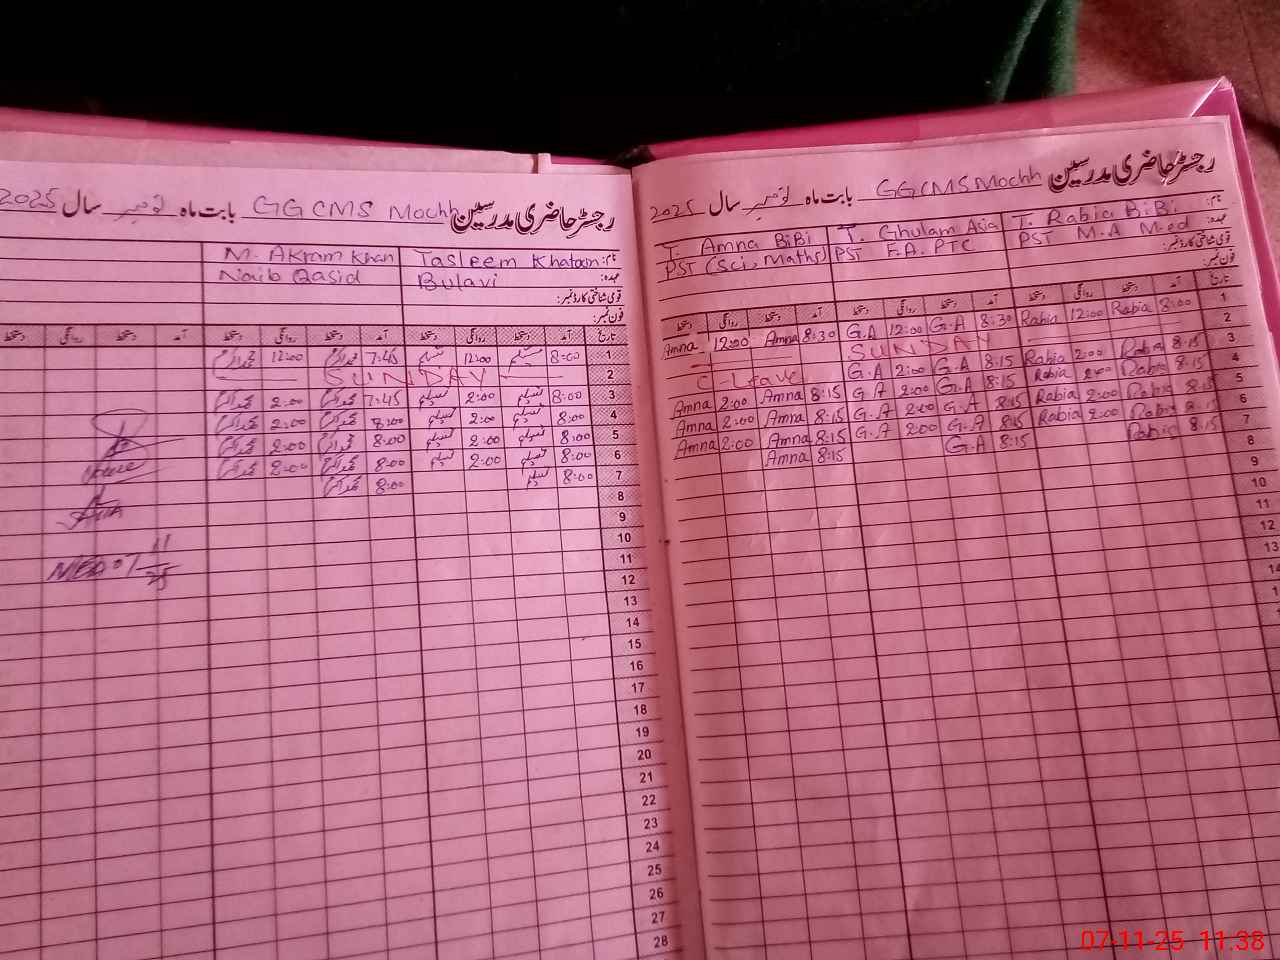 رجسٹر حاضری مدرسین GGCMS Mochh بابت ماہ نومبر سال 2025
نام: Tasleem Khatoon M. Akram Khan
عہدہ: Bulavi Naib Qasid
قومی شناختی کارڈ نمبر:
فون نمبر:
تاریخ آمد دستخط روانگی دستخط آمد دستخط روانگی دستخط آمد دستخط روانگی دستخط
1 8:00 تسلیم 12:00 تسلیم 7:45 محمد اکرم 12:00 محمد اکرم
2 SUNDAY
3 8:00 تسلیم 2:00 تسلیم 7:45 محمد اکرم 2:00 محمد اکرم
4 8:00 تسلیم 2:00 تسلیم محمد اکرم 2:00 محمد اکرم
5 8:00 تسلیم 2:00 تسلیم 8:00 محمد اکرم 2:00 محمد اکرم
6 8:00 تسلیم 2:00 تسلیم 8:00 محمد اکرم 2:00 محمد اکرم
7 8:00 تسلیم 8:00 محمد اکرم
8
9
10
11
12
13
14
15
16
17
18
19
20
21
22
23
24
25
26
27
28
رجسٹر حاضری مدرسین GGCMS Mochh بابت ماہ نومبر سال 2025
نام: T. Rabia BiBi T. Ghulam Asia T. Amna BiBi
عہدہ: PST M.A M.ed PST F.A. PTC PST (Sci, Maths)
قومی شناختی کارڈ نمبر:
فون نمبر:
تاریخ آمد دستخط روانگی دستخط آمد دستخط روانگی دستخط آمد دستخط روانگی دستخط
1 8:00 Rabia 12:00 Rabia 8:30 G.A 12:00 G.A 8:30 Amna 12:00 Amna
2 SUNDAY
3 8:15 Rabia 2:00 Rabia 8:15 G.A 2:00 G.A C-Leave
4 8:15 Rabia 2:00 Rabia 8:15 G.A 2:00 G.A 8:15 Amna 2:00 Amna
5 8:15 Rabia 2:00 Rabia 8:15 G.A 2:00 G.A 8:15 Amna 2:00 Amna
8:15 Rabia 8:15 G.A 2:00 G.A 8:15 Amna 2:00 Amna
7 8:15 G.A 8:15 Amna
8
9
10
11
12
13
07-11-25 11:38